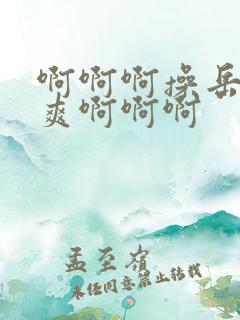 啊啊啊操岳
爽啊啊啊
孟至岩
未经同意禁止转载